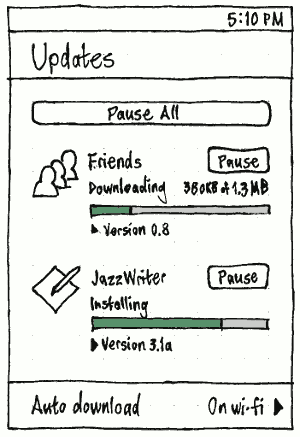 5:10 PM
Updates
Pause All
Friends
Pause
Downloading 380KB of 1.3MB
Version 0.8
JazzWriter
Pause
Installing
Version 3.1a
Auto download On wi-fi